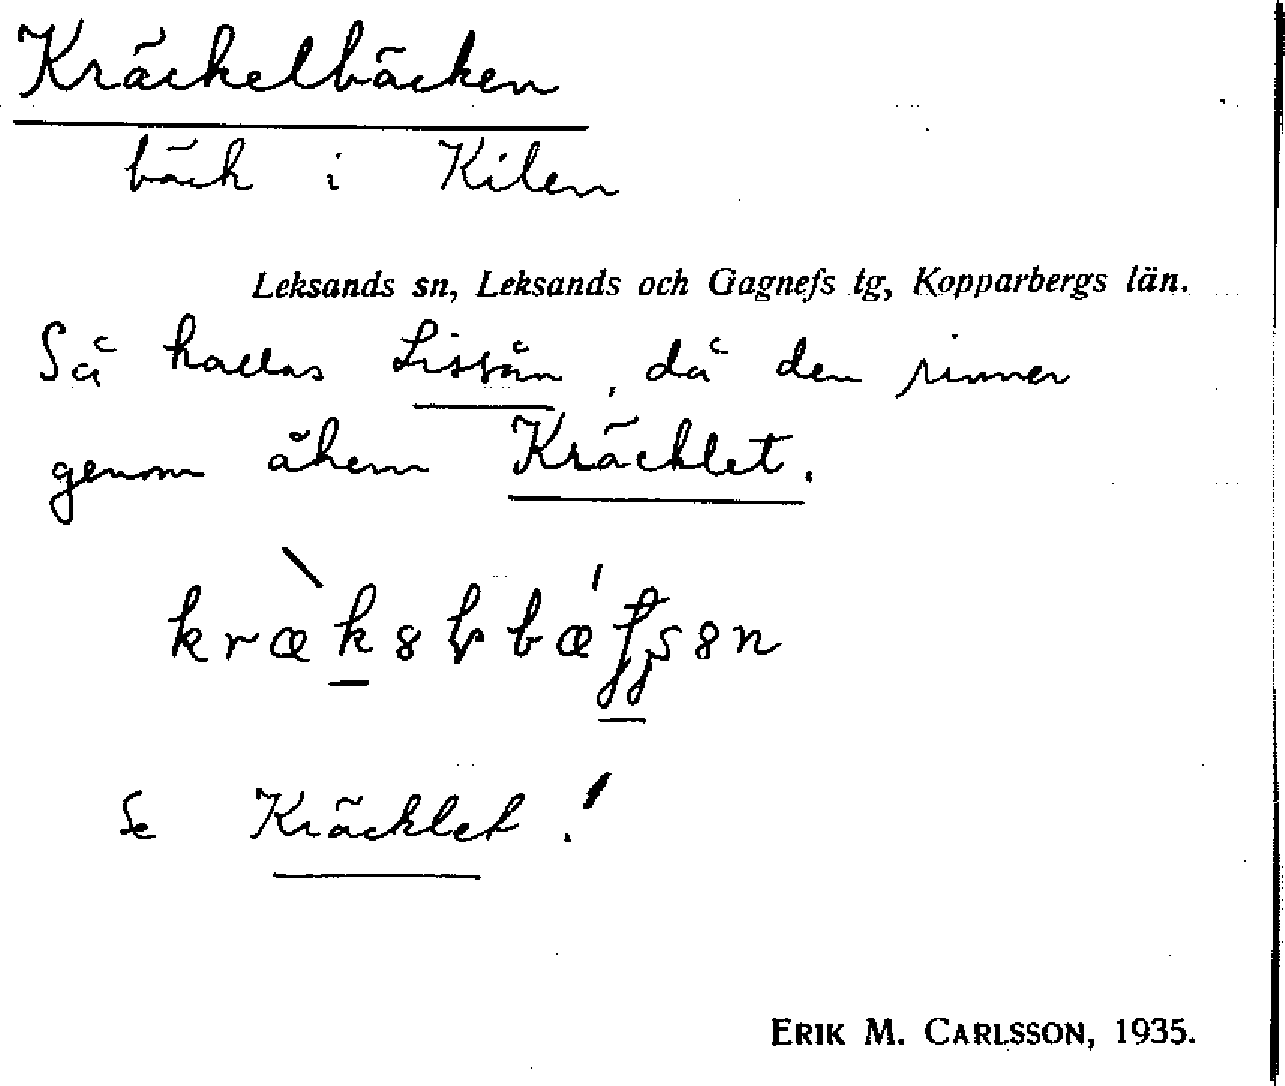 Kräckelbäcken
bäck i Kilen
Leksands sn, Leksands och Gagnefs tg, Kopparbergs län.
Så kallas Lissån, då den rinner
genom åkern Kräcklet.
se Kräcklet!
ERIK M. CARLSSON, 1935.